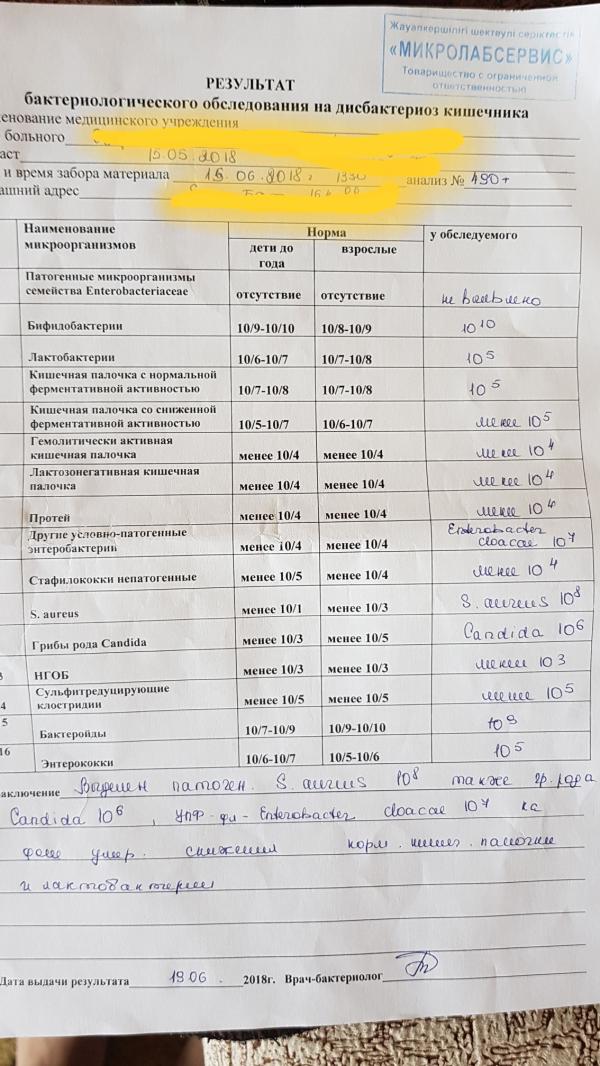 Жауапкершілігі шектеулі серіктестік
«МИКРОЛАБСЕРВИС»
Товарищество с ограниченной
ответственностью
РЕЗУЛЬТАТ
бактериологического обследования на дисбактериоз кишечника
енование медицинского учреждения
больного
аст 15.05.2018
и время забора материала 15.06.2018г 1330 анализ № 490+
ашний адрес
Наименование микроорганизмов Норма у обследуемого
дети до года взрослые
Патогенные микроорганизмы семейства Enterobacteriaceae отсутствие отсутствие не выявлено
Бифидобактерии 10/9-10/10 10/8-10/9 10 10
Лактобактерии 10/6-10/7 10/7-10/8 10 5
Кишечная палочка с нормальной ферментативной активностью 10/7-10/8 10/7-10/8 10 5
Кишечная палочка со сниженной ферментативной активностью 10/5-10/7 10/6-10/7 менее 10 5
Гемолитически активная кишечная палочка менее 10/4 менее 10/4 менее 10 4
Лактозонегативная кишечная палочка менее 10/4 менее 10/4 менее 10 4
Протей менее 10/4 менее 10/4 менее 10 4
Другие условно-патогенные энтеробактерии менее 10/4 менее 10/4 Enterobacter cloacae 10 7
Стафилококки непатогенные менее 10/5 менее 10/4 менее 10 4
S. aureus менее 10/1 менее 10/3 S. aureus 10 8
Грибы рода Candida менее 10/3 менее 10/5 Candida 10 6
3 НГОБ менее 10/3 менее 10/3 менее 10 3
4 Сульфитредуцирующие клостридии менее 10/5 менее 10/5 менее 10 5
5 Бактероиды 10/7-10/9 10/9-10/10 10 9
16 Энтерококки 10/6-10/7 10/5-10/6 10 5
аключение Выделен патоген. S. aureus 10 8 также гр. рода
Candida 10 6, УПФ-фл-Enterobacter cloacae 10 7 на
фоне умер. снижения норм. кишеч. палочки
и лактобактерии
Дата выдачи результата 19 06. 2018г. Врач-бактериолог